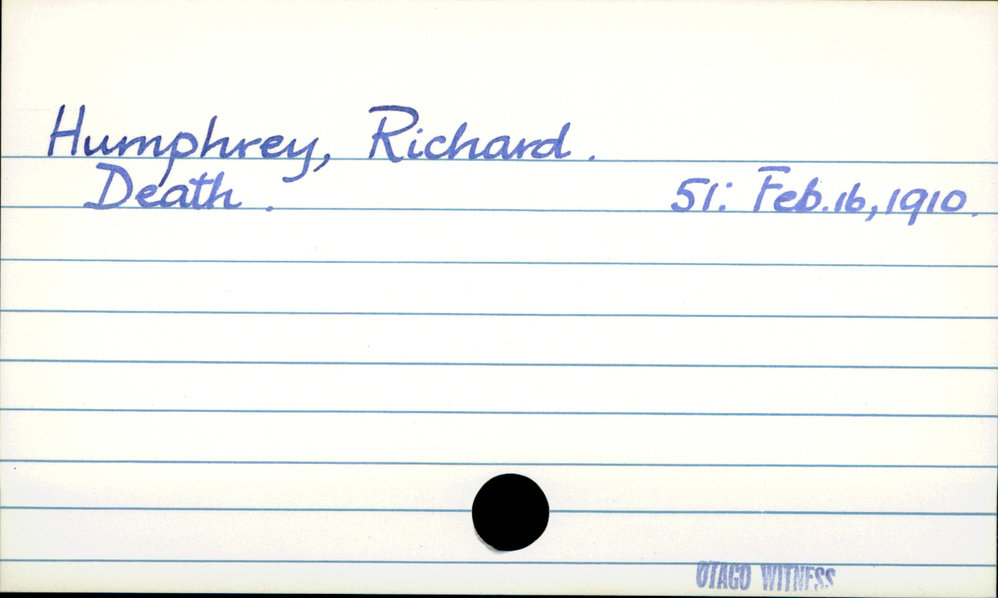 Humphrey, Richard.
Death. 51: Feb. 16, 1910.
OTAGO WITNESS